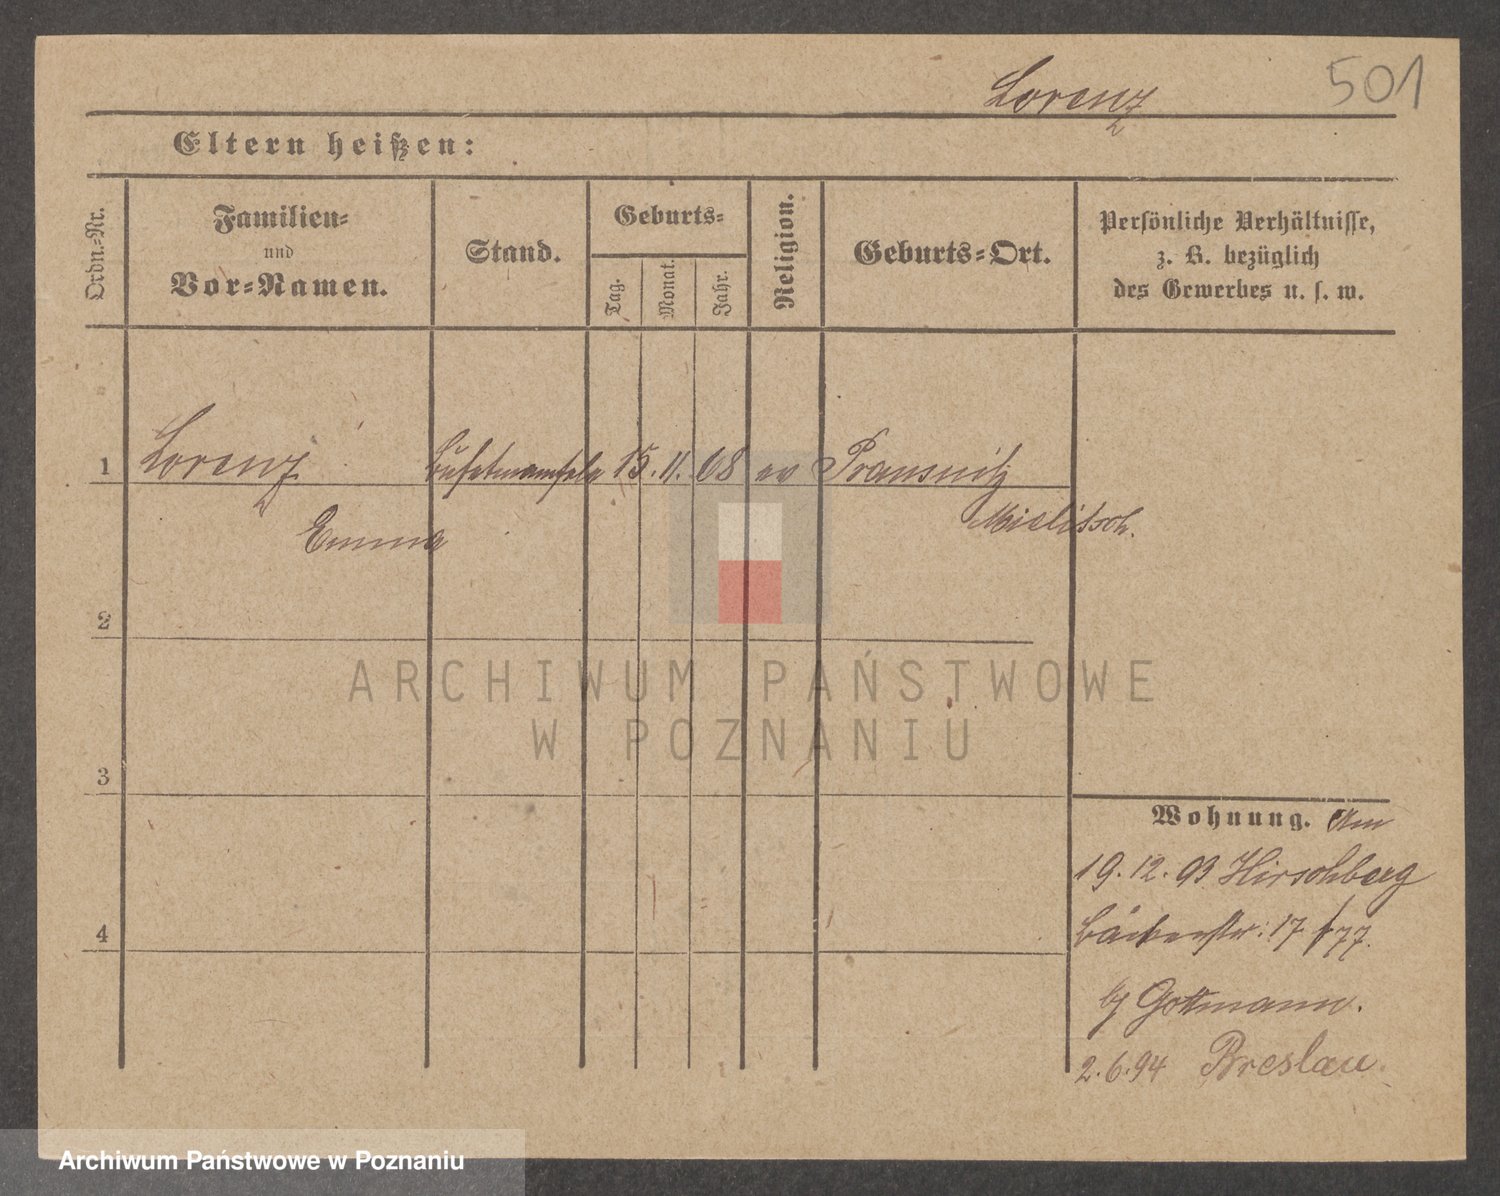 Lorenz
501
Eltern heißen:
Ordn.-Nr.
Familien-
und
Vor-Namen.
Stand.
Geburts-
Tag.
Monat.
Jahr.
Religion.
Geburts-Ort.
Persönliche Verhältnisse,
z. B. bezüglich
des Gewerbes u. s. w.
1 Lorenz Bufetmamsele 15. 11. 68 ev Prausnitz
Emma Mielitsch.
2
ARCHIWUM PAŃSTWOWE
W POZNANIU
3
Wohnung. Am
19. 12. 93 Hirschberg
4
Bäckerstr. 17 /77.
b/ Gottmann.
2. 6. 94 Breslau.
Archiwum Państwowe w Poznaniu